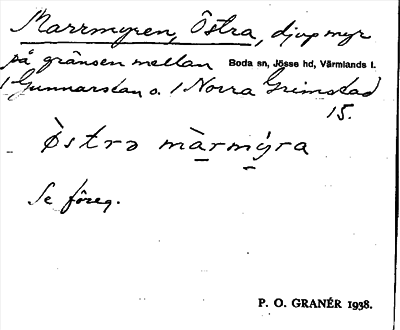 Marrmyren, Östra, djup myr
på gränsen mellan Boda sn, Jösse hd, Värmlands l.
1 Gunnarstan o. 1 Norra Grimstad
15.
Östrə màrmýra
Se föreg.
P. O. GRANÉR 1938.